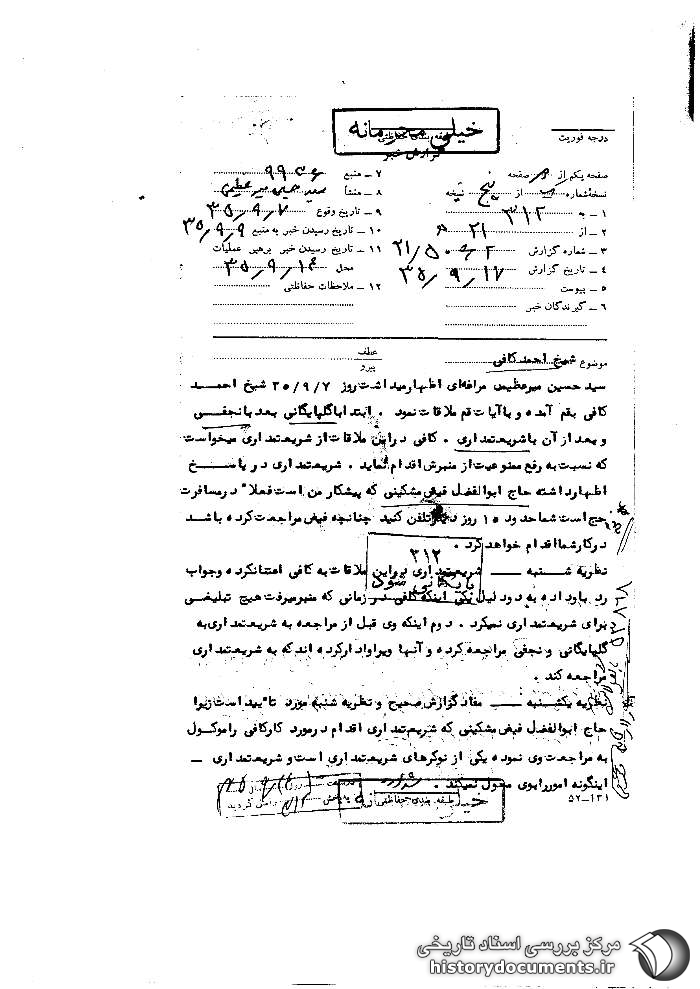 خیلی محرمانه
گزارش خبر
درجه فوریت
صفحه یکم از صفحه
نسخه شماره از پنج نسخه
۱ ــ به ۳۱۲
۲ ــ از ۲۱
۳ ــ شماره گزارش
۴ ــ تاریخ گزارش ۳۵/۹/۱۷
۵ ــ پیوست
۶ ــ گیرندگان خبر
۷ ــ منبع
۸ ــ منشأ سید حسین میرعظیمی
۹ ــ تاریخ وقوع ۳۵/۹/۷
۱۰ ــ تاریخ رسیدن خبر به منبع ۳۵/۹/۹
۱۱ ــ تاریخ رسیدن خبر برهبر عملیات
محل ۳۵/۹/۱۴
۱۲ ــ ملاحظات حفاظتی
موضوع شیخ احمد کافی
عطف
پیرو
سید حسین میرعظیمی مراغه‌ای اظهار میداشت روز ۳۵/۹/۷ شیخ احمـــد
کافی بقم آمده و با آیات قم ملاقات نمود . ابتدا با گلپایگانی بعد با نجفـــی
و بعد از آن با شریعتمداری . کافی در این ملاقات از شریعتمداری میخواست
که نسبت به رفع ممنوعیت از منبرش اقدام نماید . شریعتمداری در پاســـخ
اظهار داشته حاج ابوالفضل فیض مشکینی که پیشکار من است فعلا" در مسافرت
حج است شما حدود ۱۵ روز دیگر تلفن کنید چنانچه فیض مراجعت کرده باشـد
در کار شما اقدام خواهد کرد .
۳۱۲
بایگانی شود
نظریه شـــنبه ــــ شریعتمداری در این ملاقات به کافی اعتنا نکرده و جواب
رد باو داده به دو دلیل یکی اینکه کافی در زمانی که منبر میرفت هیچ تبلیغـی
برای شریعتمداری نمیکرد . دوم اینکه وی قبل از مراجعه به شریعتمداری به
گلپایگانی و نجفی مراجعه کرده و آنها ویرا وادار کرده اند که به شریعتمداری
مراجعه کند .
نظریه یکشـــنبه ــــ مفاد گزارش صحیح و نظریه شنبه مورد تائید است زیرا
حاج ابوالفضل فیض مشکینی که شریعتمداری اقدام در مورد کار کافی را موکـول
به مراجعت وی نموده یکی از نوکرهای شریعتمداری است و شریعتمداری ــ
اینگونه امور را بوی محول نمیکند .
۵۲ــ۱۳۱
طبقه بندی حفاظتی
مرکز بررسی اسناد تاریخی
historydocuments.ir